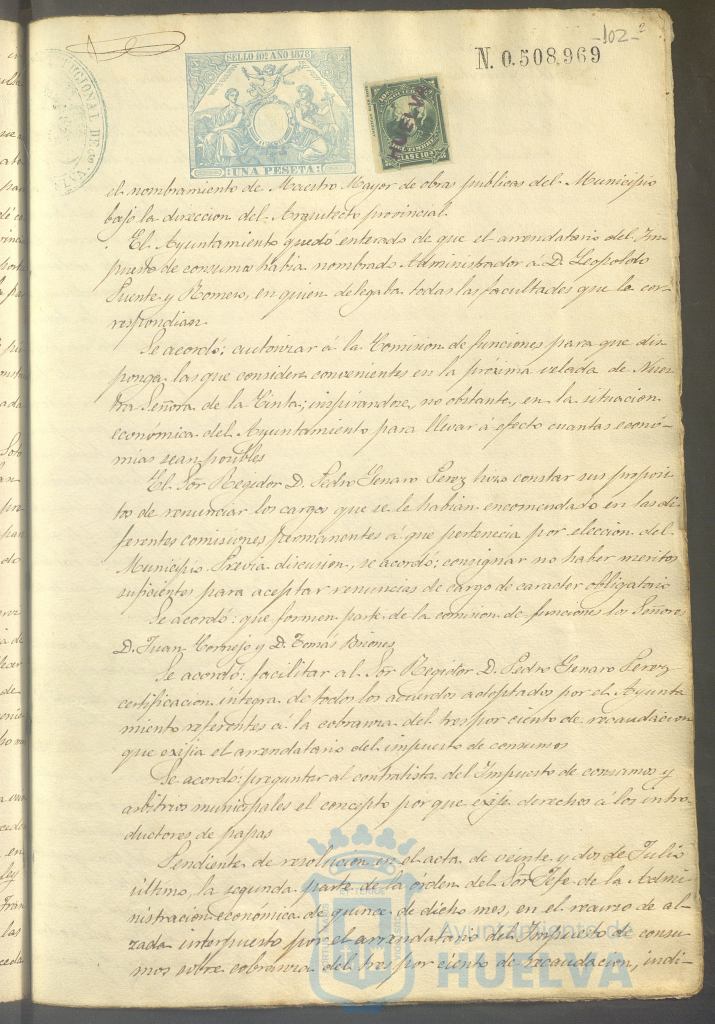 -102-
N. 0.508,969
SELLO 10º AÑO 1878
UNA PESETA
el nombramiento de Maestro Mayor de obras publicas del Municipio
bajo la direccion del Arquitecto provincial.
El Ayuntamiento quedó enterado de que el arrendatario del Im-
puesto de consumos habia nombrado Administrador a D. Leopoldo
Puente y Romero, en quien delegaba todas las facultades que le cor-
respondian
Se acordó: autorizar á la Comision de funciones para que dis-
ponga las que considere convenientes en la próxima velada de Nues-
tra Señora de la Cinta; inspirándose, no obstante, en la situacion
económica del Ayuntamiento para llevar á efecto cuantas econó-
mias sean posibles
El Sor Regidor D. Pedro Genaro Perez hizo constar sus proposi-
tos de renunciar los cargos que se le habian encomendado en las di-
ferentes comisiones permanentes á que pertenecia por eleccion del
Municipio. Previa discusion, se acordó; consignar no haber meritos
suficientes para aceptar renuncias de cargo de caracter obligatorio
Se acordó: que formen parte de la comision de funciones los Señores
D. Juan Cornejo y D. Tomás Briones
Se acordó: facilitar al Sor Regidor D. Pedro Genaro Perez
certificacion integra de todos los acuerdos adoptados por el Ayunta
miento referentes á la cobranza del tres por ciento de recaudacion
que exijia el arrendatario del impuesto de consumos
Se acordó: preguntar al contratista del Impuesto de consumos y
arbitrios municipales el concepto por que exije derechos á los intro-
ductores de papas
Pendiente de resolucion en el acta de veinte y dos de Julio
último, la segunda parte de la órden del Sor Jefe de la Admi-
nistracion económica de quince de dicho mes, en el recurso de al-
zada interpuesto por el arrendatario del Impuesto de consu-
mos sobre cobranza del tres por ciento de recaudacion, indi-
Ayuntamiento de
HUELVA